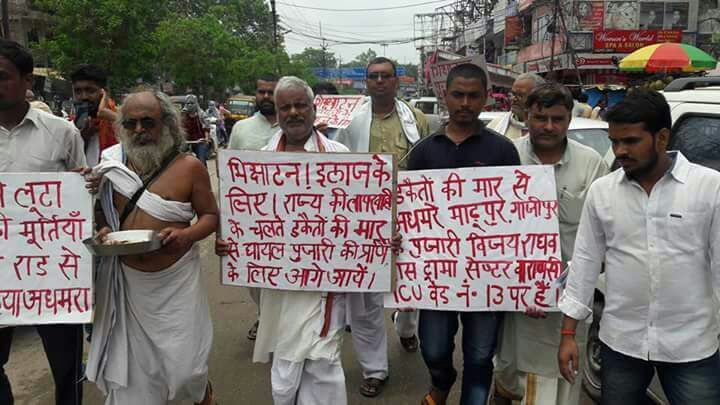 लूटा
मूर्तियाँ
राड से
अधमरा
भिक्षाटन! इलाज के
लिए! राज्य की लापरवाही
के चलते डकैतों की मार
से घायल पुजारी की प्राण
के लिए आगे आयें!
डकैतों की मार से
अधमरे मादपुर गाजीपुर
पुजारी विजय राघव
दास ट्रामा सेण्टर वाराणसी
ICU वेड नं. 13 पर हैं
Women's World
SPA & SALON